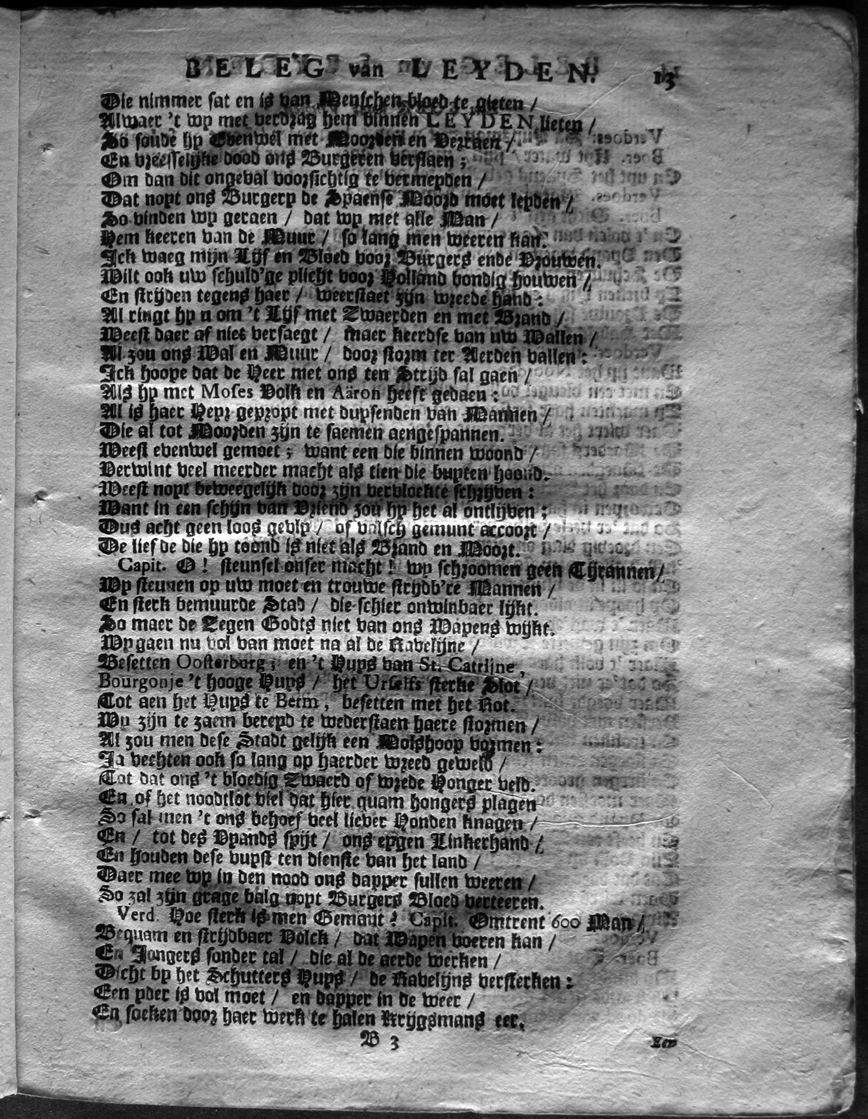 BELEG van LEYDEN. 13
Die nimmer sat en is van Menschen-bloed te gieten /
Alwaer 't wy met verdrag hem binnen LEYDEN lieten /
So soude hy Evenwel met Moorden en Verraen /
En vreesselijke dood ons Burgeren verslaen ;
Om dan dit ongeval voorsichtig te vermeyden /
Dat noyt ons Burgery de Spaense Moord moet leyden /
So vinden wy geraen / dat wy met alle Man /
Hem keeren van de Muur / so lang men weeren kan.
Ick waeg mijn Lijf en Bloed voor Burgers ende Vrouwen.
Wilt ook uw schuld'ge plicht voor Holland bondig houwen /
En strijden tegens haer / weerstaet zijn wreede hand :
Al ringt hy u om 't Lijf met Zwaerden en met Brand /
Weest daer af niet versaegt / maer keerdse van uw Wallen /
Al zou ons Wal en Muur / door storm ter Aerden vallen :
Ick hoope dat de Heer met ons ten Strijd sal gaen /
Als hy met Moses Volk en Aäron heeft gedaen :
Al is haer Heyr gepropt met duysenden van Mannen /
Die al tot Moorden zijn te saemen aengespannen.
Weest evenwel gemoet ; want een die binnen woond /
Verwint veel meerder macht als tien die buyten hoond.
Weest noyt beweegelijk door zijn vervloekte schrijven :
Want in een schijn van Vriend zou hy het al ontlijven ;
Dus acht geen loos gevly / of valsch gemunt accoort /
De liefde die hy toond is niet als Brand en Moort.
Capit. O ! steunsel onser macht ! wy schroomen geen Tyrannen /
Wy steunen op uw moet en trouwe strijdb're Mannen /
En sterk bemuurde Stad / die schier onwinbaer lijkt.
So maer de Zegen Godts niet van ons Wapens wijkt.
Wy gaen nu vol van moet na al de Ravelijne /
Besetten Oosterborg ; en 't Huys van St. Catrijne,
Bourgonje 't hooge Huys / het Urselfs sterke Slot /
Tot aen het Huys te Berm, besetten met het Rot.
Wy zijn te zaem bereyd te wederstaen haere stormen /
Al zou men dese Stadt gelijk een Molshoop vormen :
Ja vechten ook so lang op haerder wreed geweld /
Tot dat ons 't bloedig Zwaerd of wrede Honger veld.
En of het noodtlot viel dat hier quam hongers plagen
So sal men 't ons behoef veel liever Honden knagen /
En / tot des Vyands spijt / ons eygen Linkerhand /
En houden dese vuyst ten dienste van het land /
Daer mee wy in den nood ons dapper sullen weeren /
So zal zijn grage balg noyt Burgers Bloed verteeren.
Verd. Hoe sterk is men Gemant ? Capit. Omtrent 600 Man /
Bequam en strijdbaer Volck / dat Wapen voeren kan /
En Jongers sonder tal / die al de aerde werken /
Dicht by het Schutters Huys / de Ravelijns versterken :
Een yder is vol moet / en dapper in de weer /
En soeken door haer werk te halen Krijgsmans eer.
B 3